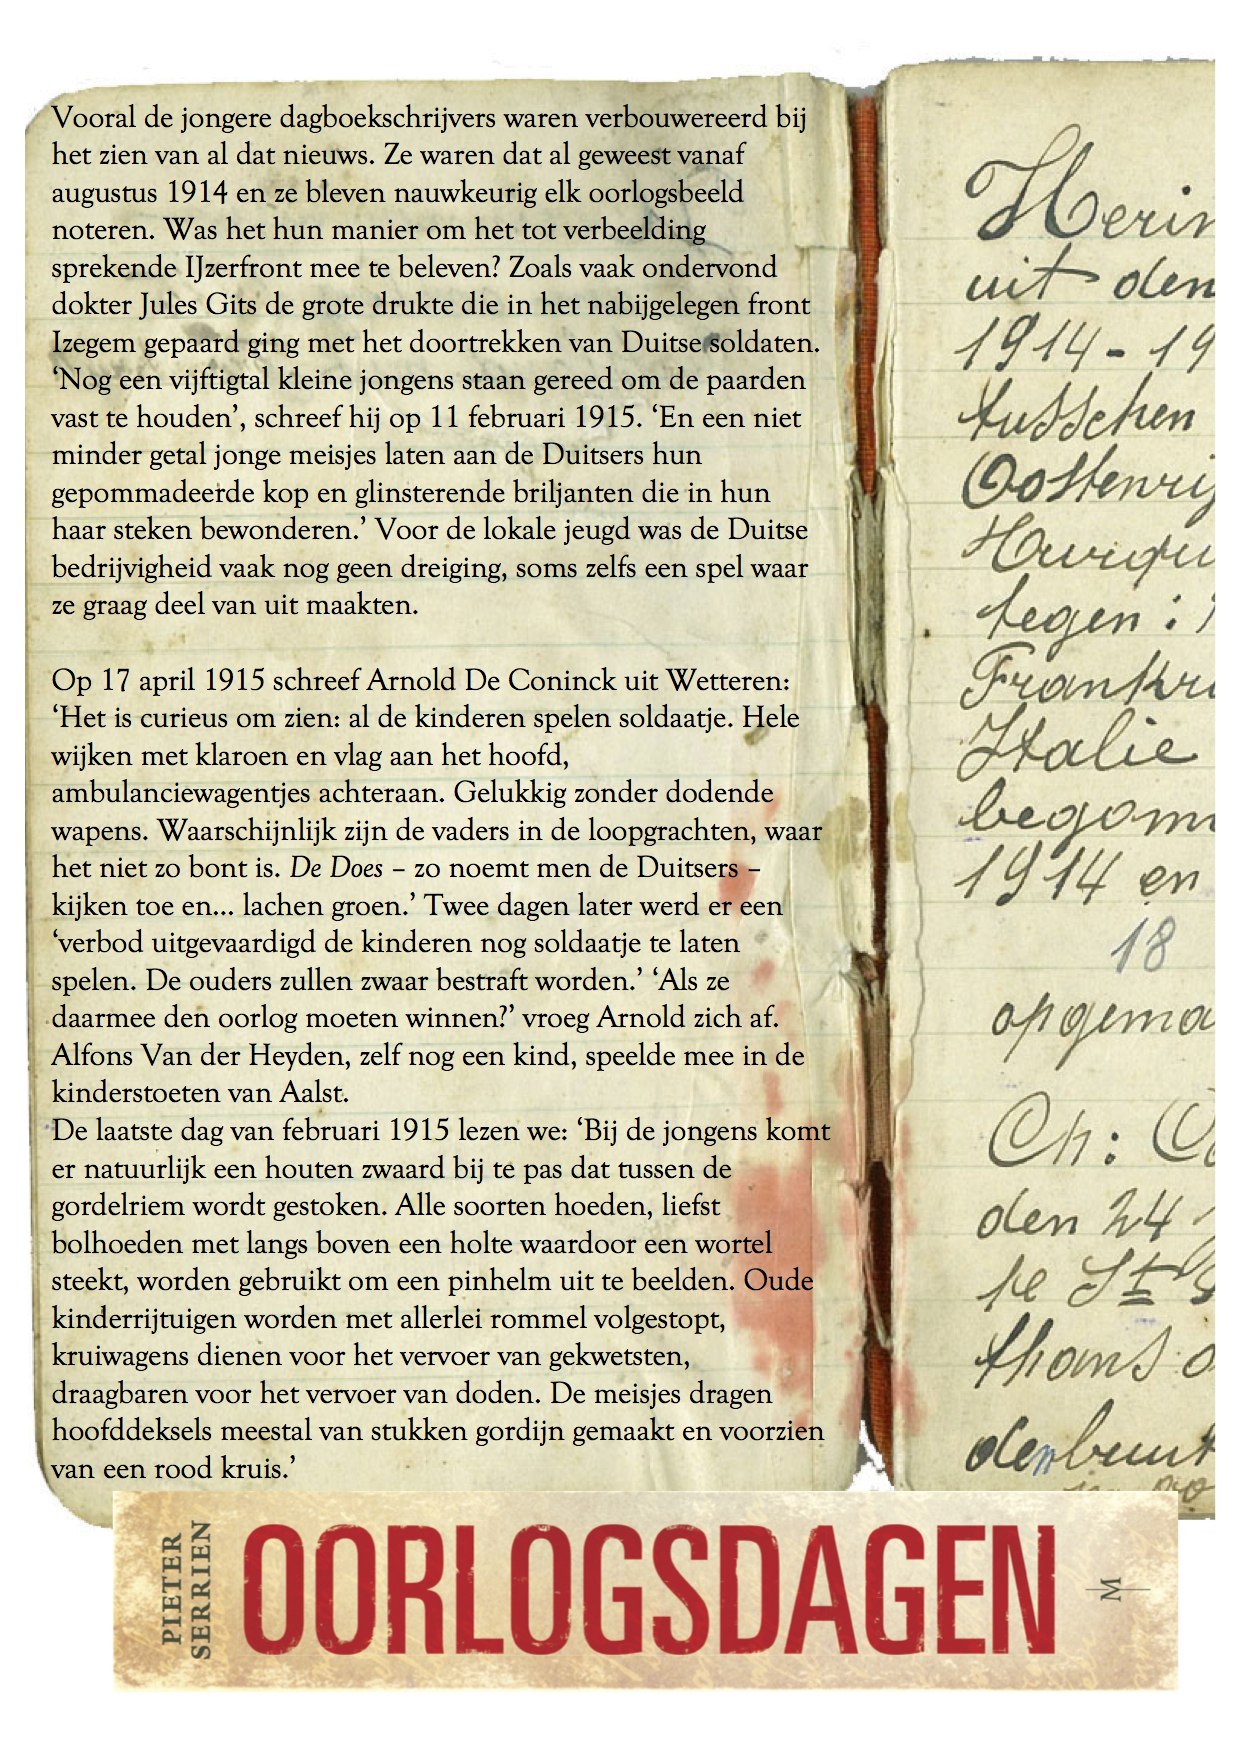 Vooral de jongere dagboekschrijvers waren verbouwereerd bij
het zien van al dat nieuws. Ze waren dat al geweest vanaf
augustus 1914 en ze bleven nauwkeurig elk oorlogsbeeld
noteren. Was het hun manier om het tot verbeelding
sprekende IJzerfront mee te beleven? Zoals vaak ondervond
dokter Jules Gits de grote drukte die in het nabijgelegen front
Izegem gepaard ging met het doortrekken van Duitse soldaten.
‘Nog een vijftigtal kleine jongens staan gereed om de paarden
vast te houden’, schreef hij op 11 februari 1915. ‘En een niet
minder getal jonge meisjes laten aan de Duitsers hun
gepommadeerde kop en glinsterende briljanten die in hun
haar steken bewonderen.’ Voor de lokale jeugd was de Duitse
bedrijvigheid vaak nog geen dreiging, soms zelfs een spel waar
ze graag deel van uit maakten.
Op 17 april 1915 schreef Arnold De Coninck uit Wetteren:
‘Het is curieus om zien: al de kinderen spelen soldaatje. Hele
wijken met klaroen en vlag aan het hoofd,
ambulanciewagentjes achteraan. Gelukkig zonder dodende
wapens. Waarschijnlijk zijn de vaders in de loopgrachten, waar
het niet zo bont is. De Does – zo noemt men de Duitsers –
kijken toe en... lachen groen.’ Twee dagen later werd er een
‘verbod uitgevaardigd de kinderen nog soldaatje te laten
spelen. De ouders zullen zwaar bestraft worden.’ ‘Als ze
daarmee den oorlog moeten winnen?’ vroeg Arnold zich af.
Alfons Van der Heyden, zelf nog een kind, speelde mee in de
kinderstoeten van Aalst.
De laatste dag van februari 1915 lezen we: ‘Bij de jongens komt
er natuurlijk een houten zwaard bij te pas dat tussen de
gordelriem wordt gestoken. Alle soorten hoeden, liefst
bolhoeden met langs boven een holte waardoor een wortel
steekt, worden gebruikt om een pinhelm uit te beelden. Oude
kinderrijtuigen worden met allerlei rommel volgestopt,
kruiwagens dienen voor het vervoer van gekwetsten,
draagbaren voor het vervoer van doden. De meisjes dragen
hoofddeksels meestal van stukken gordijn gemaakt en voorzien
van een rood kruis.’
Herin
uit den
1914-19
tusschen
Oostenrij
tegen :
Frankri
Italie
1914 en
18
opgema
Ch:
den 24
te St
thans
PIETER
SERRIEN
OORLOGSDAGEN
M